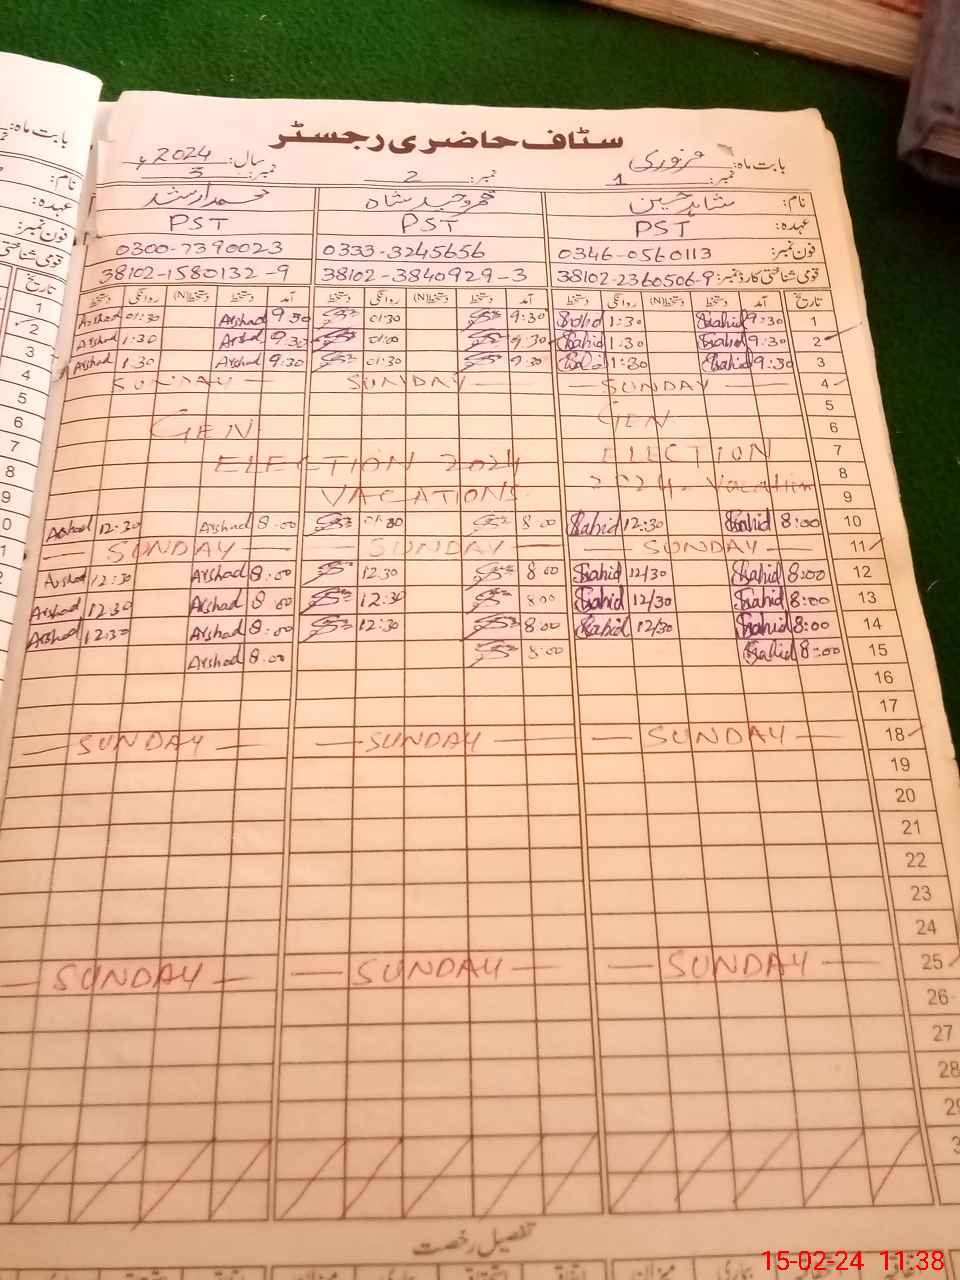 سٹاف حاضری رجسٹر
بابت ماہ: فروری سال: 2024ء
نمبر: 1 نمبر: 2 نمبر: 3
نام: شاہد حسین محمد وحید شاہ محمد ارشد
عہدہ: PST PST PST
فون نمبر: 0346-0560113 0333-3245656 0300-7390023
قومی شناختی کارڈ نمبر: 38102-2360506-9 38102-3840929-3 38102-1580132-9
تاریخ آمد دستخط دستخط(N) روانگی دستخط آمد دستخط دستخط(N) روانگی دستخط آمد دستخط دستخط(N) روانگی دستخط
1 9:30 Shahid 1:30 Shahid 9:30 01:30 9:30 Arshad 01:30 Arshad
2 9:30 Shahid 1:30 Shahid 9:30 01:00 9:30 Arshad 1:30 Arshad
3 9:30 Shahid 1:30 Shahid 9:30 01:30 9:30 Arshad 1:30 Arshad
4 SUNDAY SUNDAY SUNDAY
5
6 GEN GEN
7 ELECTION ELECTION 2024
8 2024. Vacation VACATIONS
9
10 8:00 Shahid 12:30 Shahid 8:00 01:30 8:00 Arshad 12:30 Arshad
11 SUNDAY SUNDAY SUNDAY
12 8:00 Shahid 12/30 Shahid 8:00 12:30 8:00 Arshad 12:30 Arshad
13 8:00 Shahid 12/30 Shahid 8:00 12:30 8:00 Arshad 12:30 Arshad
14 8:00 Shahid 12/30 Shahid 8:00 12:30 8:00 Arshad 12:30 Arshad
15 8:00 Shahid 8:00 8:00 Arshad
16
17
18 SUNDAY SUNDAY SUNDAY
19
20
21
22
23
24
25 SUNDAY SUNDAY SUNDAY
26
27
28
29
تفصیل رخصت
15-02-24 11:38